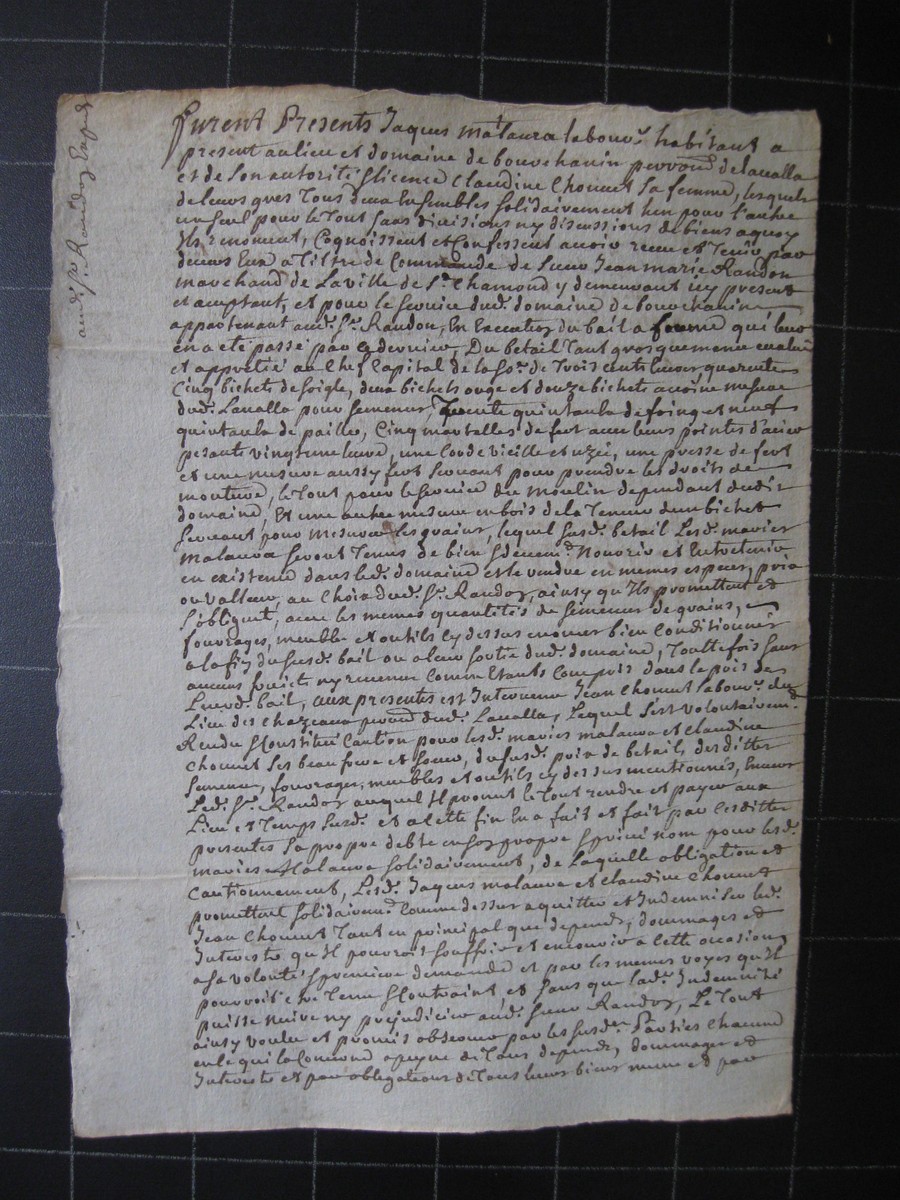 audt. Sr. Randon
Furent Presents Jaques malaura labour. habitant a
present au lieu et domaine de bouchanin parroisse de lavalla
et de son autorité & licence Claudine Chomet sa femme, lesquels
de leurs grés Tous deux Ensembles solidairement lun pour l'autre
un seul pour le tout sans divisions ny discussions de biens aquoy
Ils renoncent, Cognoissent et Confessent avoir receu et Tenir par
devers Eux a Tiltre de Commande de Sieur Jean marie Randon
marchand de La ville de St. Chamond y demeurant icy present
et acceptant, et pour le service dud. domaine de bouchanin
appartenant aud. Sr. Randon, En Execution du bail a ferme qui leur
en a eté passé par ce dernier, Du betail Tant gros que menu evalué
et appretié au Chef Capital de la so. de Trois cent livres quarente
Cinq bichet de soigle, deux bichets orge et douze bichet avoine mesure
dud. Lavalla pour semence, Trente quintaux de foing et neuf
quintaux de paille, Cinq martalles de fert avec leurs pointes d'acier
pesant vingt une livre, une Corde vieille et uzée, une presse de fert
et une mesure aussy fert servant pour prendre les droits de
mouture, le Tout pour le service du moulin dependant dudit
domaine, Et une autre mesure en bois de la Teneur dun bichet
servant pour mesurer les grains, lequel susd. betail Lesd. mariés
malaura seront Tenus de bien & decemt. Nourrir et Entretenir
en existence dans led. domaine et le rendre en memes especes, prix
ou valleur, au Choix dud. Sr. Randon, ainsy qu'Ils promettent et
s'obligent, avec les memes quantités de semences de grains,
fourrages, meuble et outils cy dessus enoncés bien Conditionnés
a la fin du susd. bail ou a leur sortie dud. domaine, Touttefois sans
aucuns fruits ny revenus Comme Etants Compris dans le prix de
Leurd. bail, aux presentes est Intervenu Jean Chomet labour. du
Lieu des Chazeaux parroisse dud. Lavalla, Lequel s'est volontairemt.
Rendu & Constitué Caution pour lesd. mariés malaura et Claudine
Chomet ses beau frere et soeur, du susd. prix de betail, desdittes
semences, fourrages, meubles et outils cy dessus mentionnés, Envers
Led. Sr. Randon auquel Il promet le Tout rendre et payer aux
Lieu et Temps susd. et a cette fin En a fait et fait par lesdittes
presentes sa propre debte en son propre & privé nom pour lesd.
mariés Malaura solidairement, de Laquelle obligation et
Cautionnement, Lesd. Jaques malaura et Claudine Chomet
promettent solidairemt. Comme dessus aquitter et Indemniser led.
Jean Chomet Tant en principal que depends, dommages et
Interests qu'Il pourroit souffrir et encourir a cette occasion
a sa volonté & premiere demande et par les memes voyes qu'Il
pourroit etre Tenu & Contraint et sans que lad. Indemnité
puisse nuire ny prejudicier aud. Sieur Randon, Le Tout
ainsy voulu et promis observer par les susd. Parties Chacune
en ce qui la Concerne a peyne de Tous depends, dommages et
Interests et par obligations de Tous leurs biens meme et par